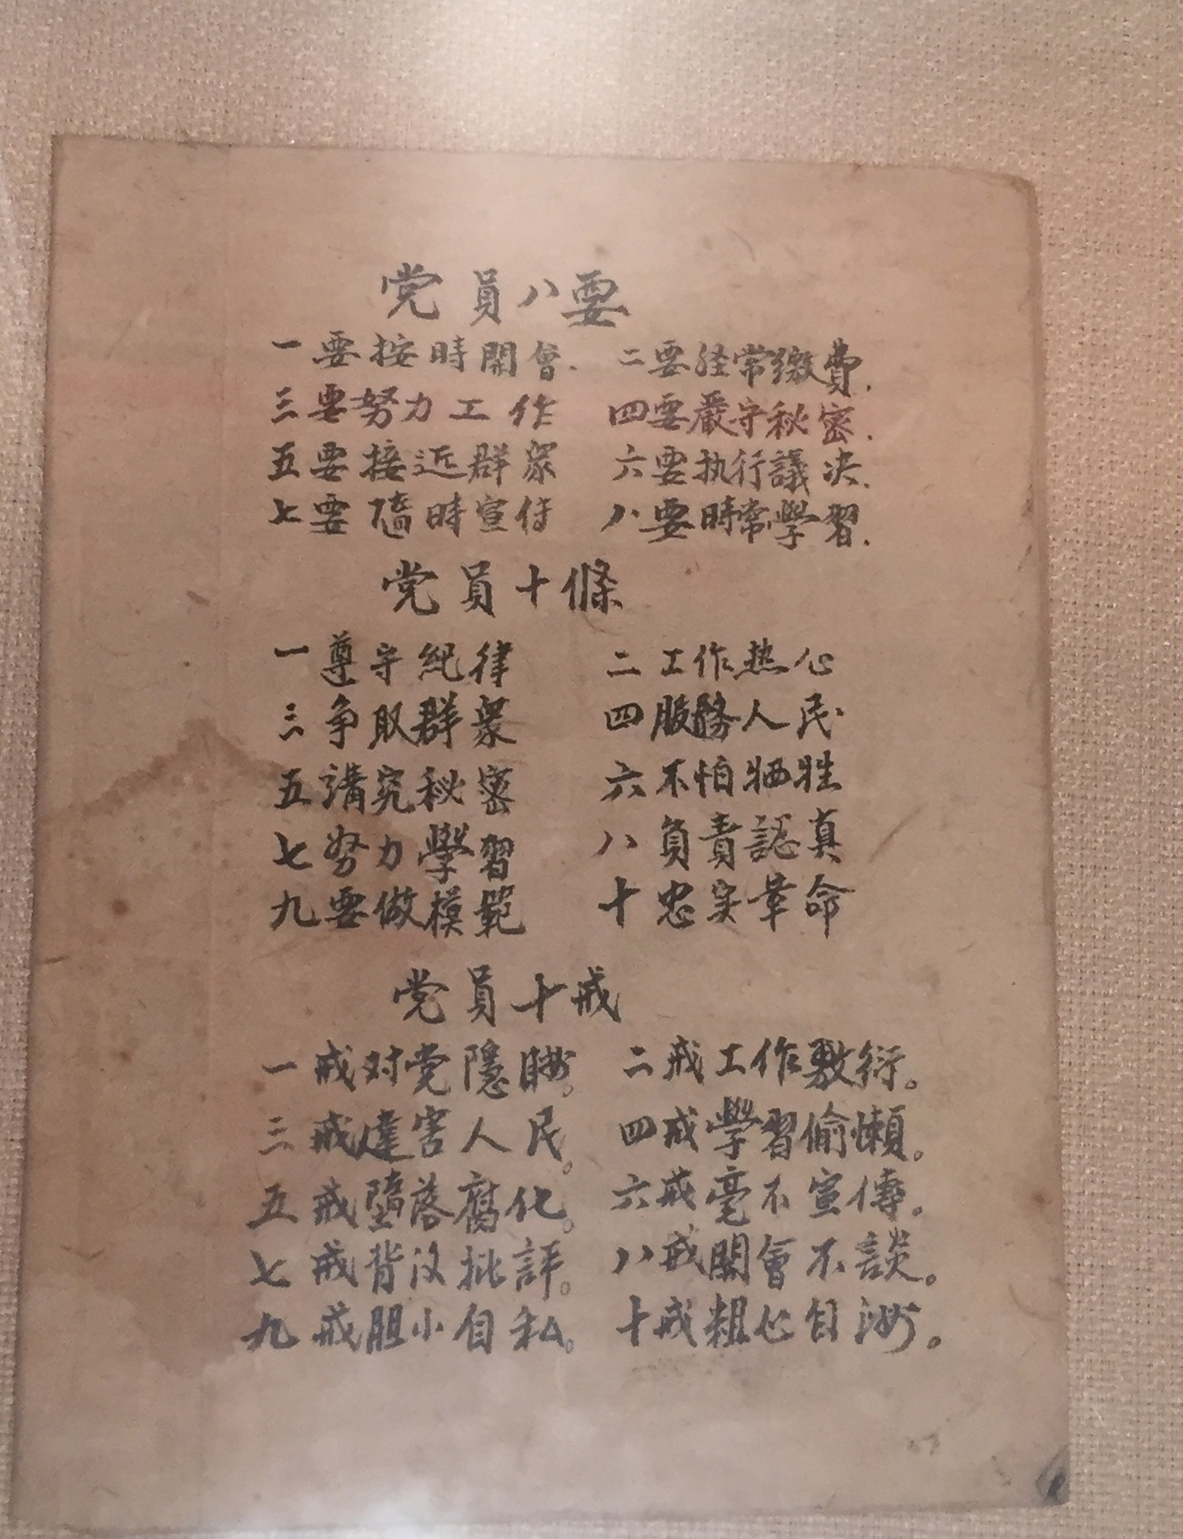 党員八要
一要按時開會. 二要経常繳費.
三要努力工作 四要嚴守秘密.
五要接近群眾 六要执行議决.
七要隨時宣传 八要時常學習.
党員十條
一尊守紀律 二工作热心
三争取群衆 四服務人民
五講究秘密 六不怕牺牲
七努力學習 八負責認真
九要做模範 十忠实革命
党員十戒
一戒对党隱瞒。 二戒工作敷衍。
三戒違害人民。 四戒學習偷懒。
五戒墮落腐化。 六戒毫不宣傳。
七戒背没批評。 八戒開會不談。
九戒胆小自私。 十戒粗心自满。